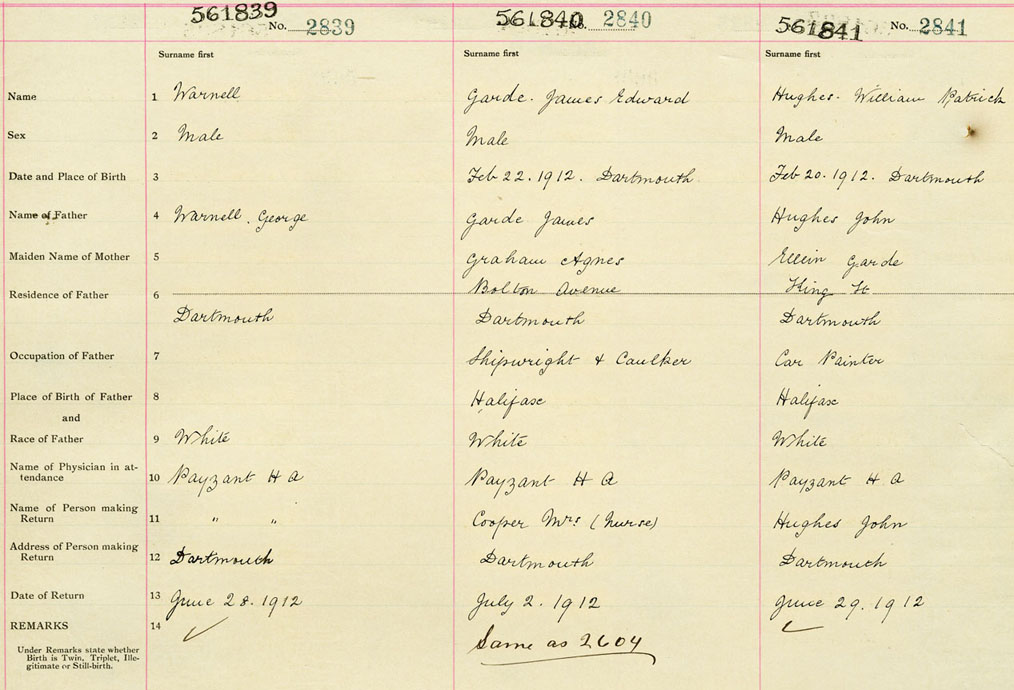 561839 No. 2839 561840 No. 2840 561841 No. 2841
Surname first Surname first Surname first
Name 1 Warnell Garde. James Edward Hughes. William Patrick
Sex 2 Male Male Male
Date and Place of Birth 3 Feb 22. 1912. Dartmouth Feb 20. 1912. Dartmouth
Name of Father 4 Warnell. George Garde James Hughes John
Maiden Name of Mother 5 Graham Agnes Ellein Garde
Bolton Avenue King St
Residence of Father 6
Dartmouth Dartmouth Dartmouth
Occupation of Father 7 Shipwright & Caulker Car Painter
Place of Birth of Father 8 Halifax Halifax
and
Race of Father 9 White White White
Name of Physician in at-
tendance 10 Payzant H A Payzant H A Payzant H A
Name of Person making
Return 11 " " Cooper Mrs (Nurse) Hughes John
Address of Person making
Return 12 Dartmouth Dartmouth Dartmouth
Date of Return 13 June 28. 1912 July 2. 1912 June 29. 1912
REMARKS 14 ✓ Same as 2604 ✓
Under Remarks state whether
Birth is Twin, Triplet, Ille-
gitimate or Still-birth.